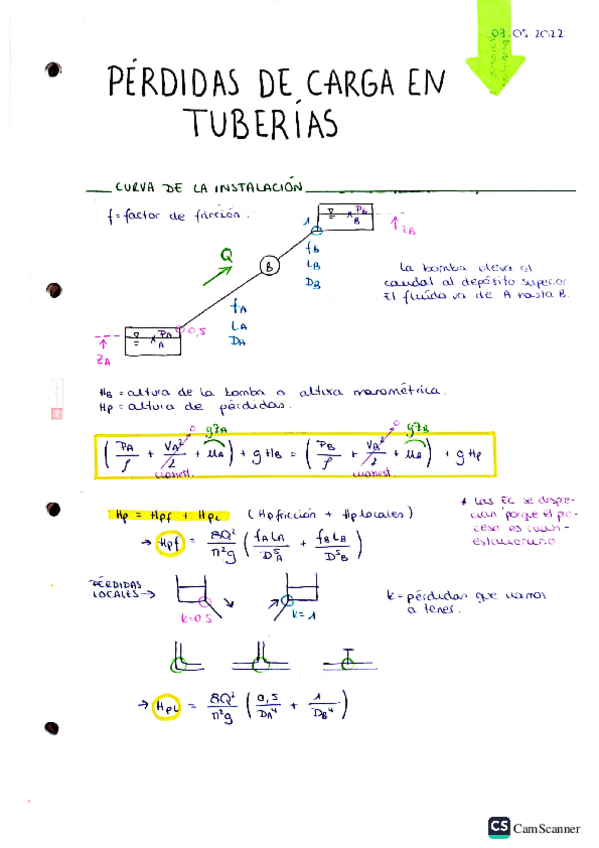 09.05.2022
PÉRDIDAS DE CARGA EN
TUBERÍAS
CURVA DE LA INSTALACIÓN
f = factor de fricción.
1
PB
B
ZB
Q
B
fB
LB
DB
La bomba eleva el
caudal al depósito superior.
El fluido va de A hasta B.
fA
LA
DA
0,5
PA
A
ZA
HB = altura de la bomba o altura manométrica.
Hp = altura de pérdidas.
0 gZA 0 gZB
(PA/ρ + VA²/2 + UA) + gHB = (PB/ρ + VA²/2 + UB) + gHp
cuasiest. cuasiest.
Hp = Hpf + HpL (Hp fricción + Hp locales)
* Las EC se despre-
cian porque el pro-
ceso es cuasi-
estacionario.
→ Hpf = 8Q²/π²g (fA LA/D⁵A + fB LB/D⁵B)
PÉRDIDAS
LOCALES →
k=0.5
k=1
k = pérdidas que vamos
a tener.
→ HpL = 8Q²/π²g (0,5/DA⁴ + 1/DB⁴)
CS CamScanner